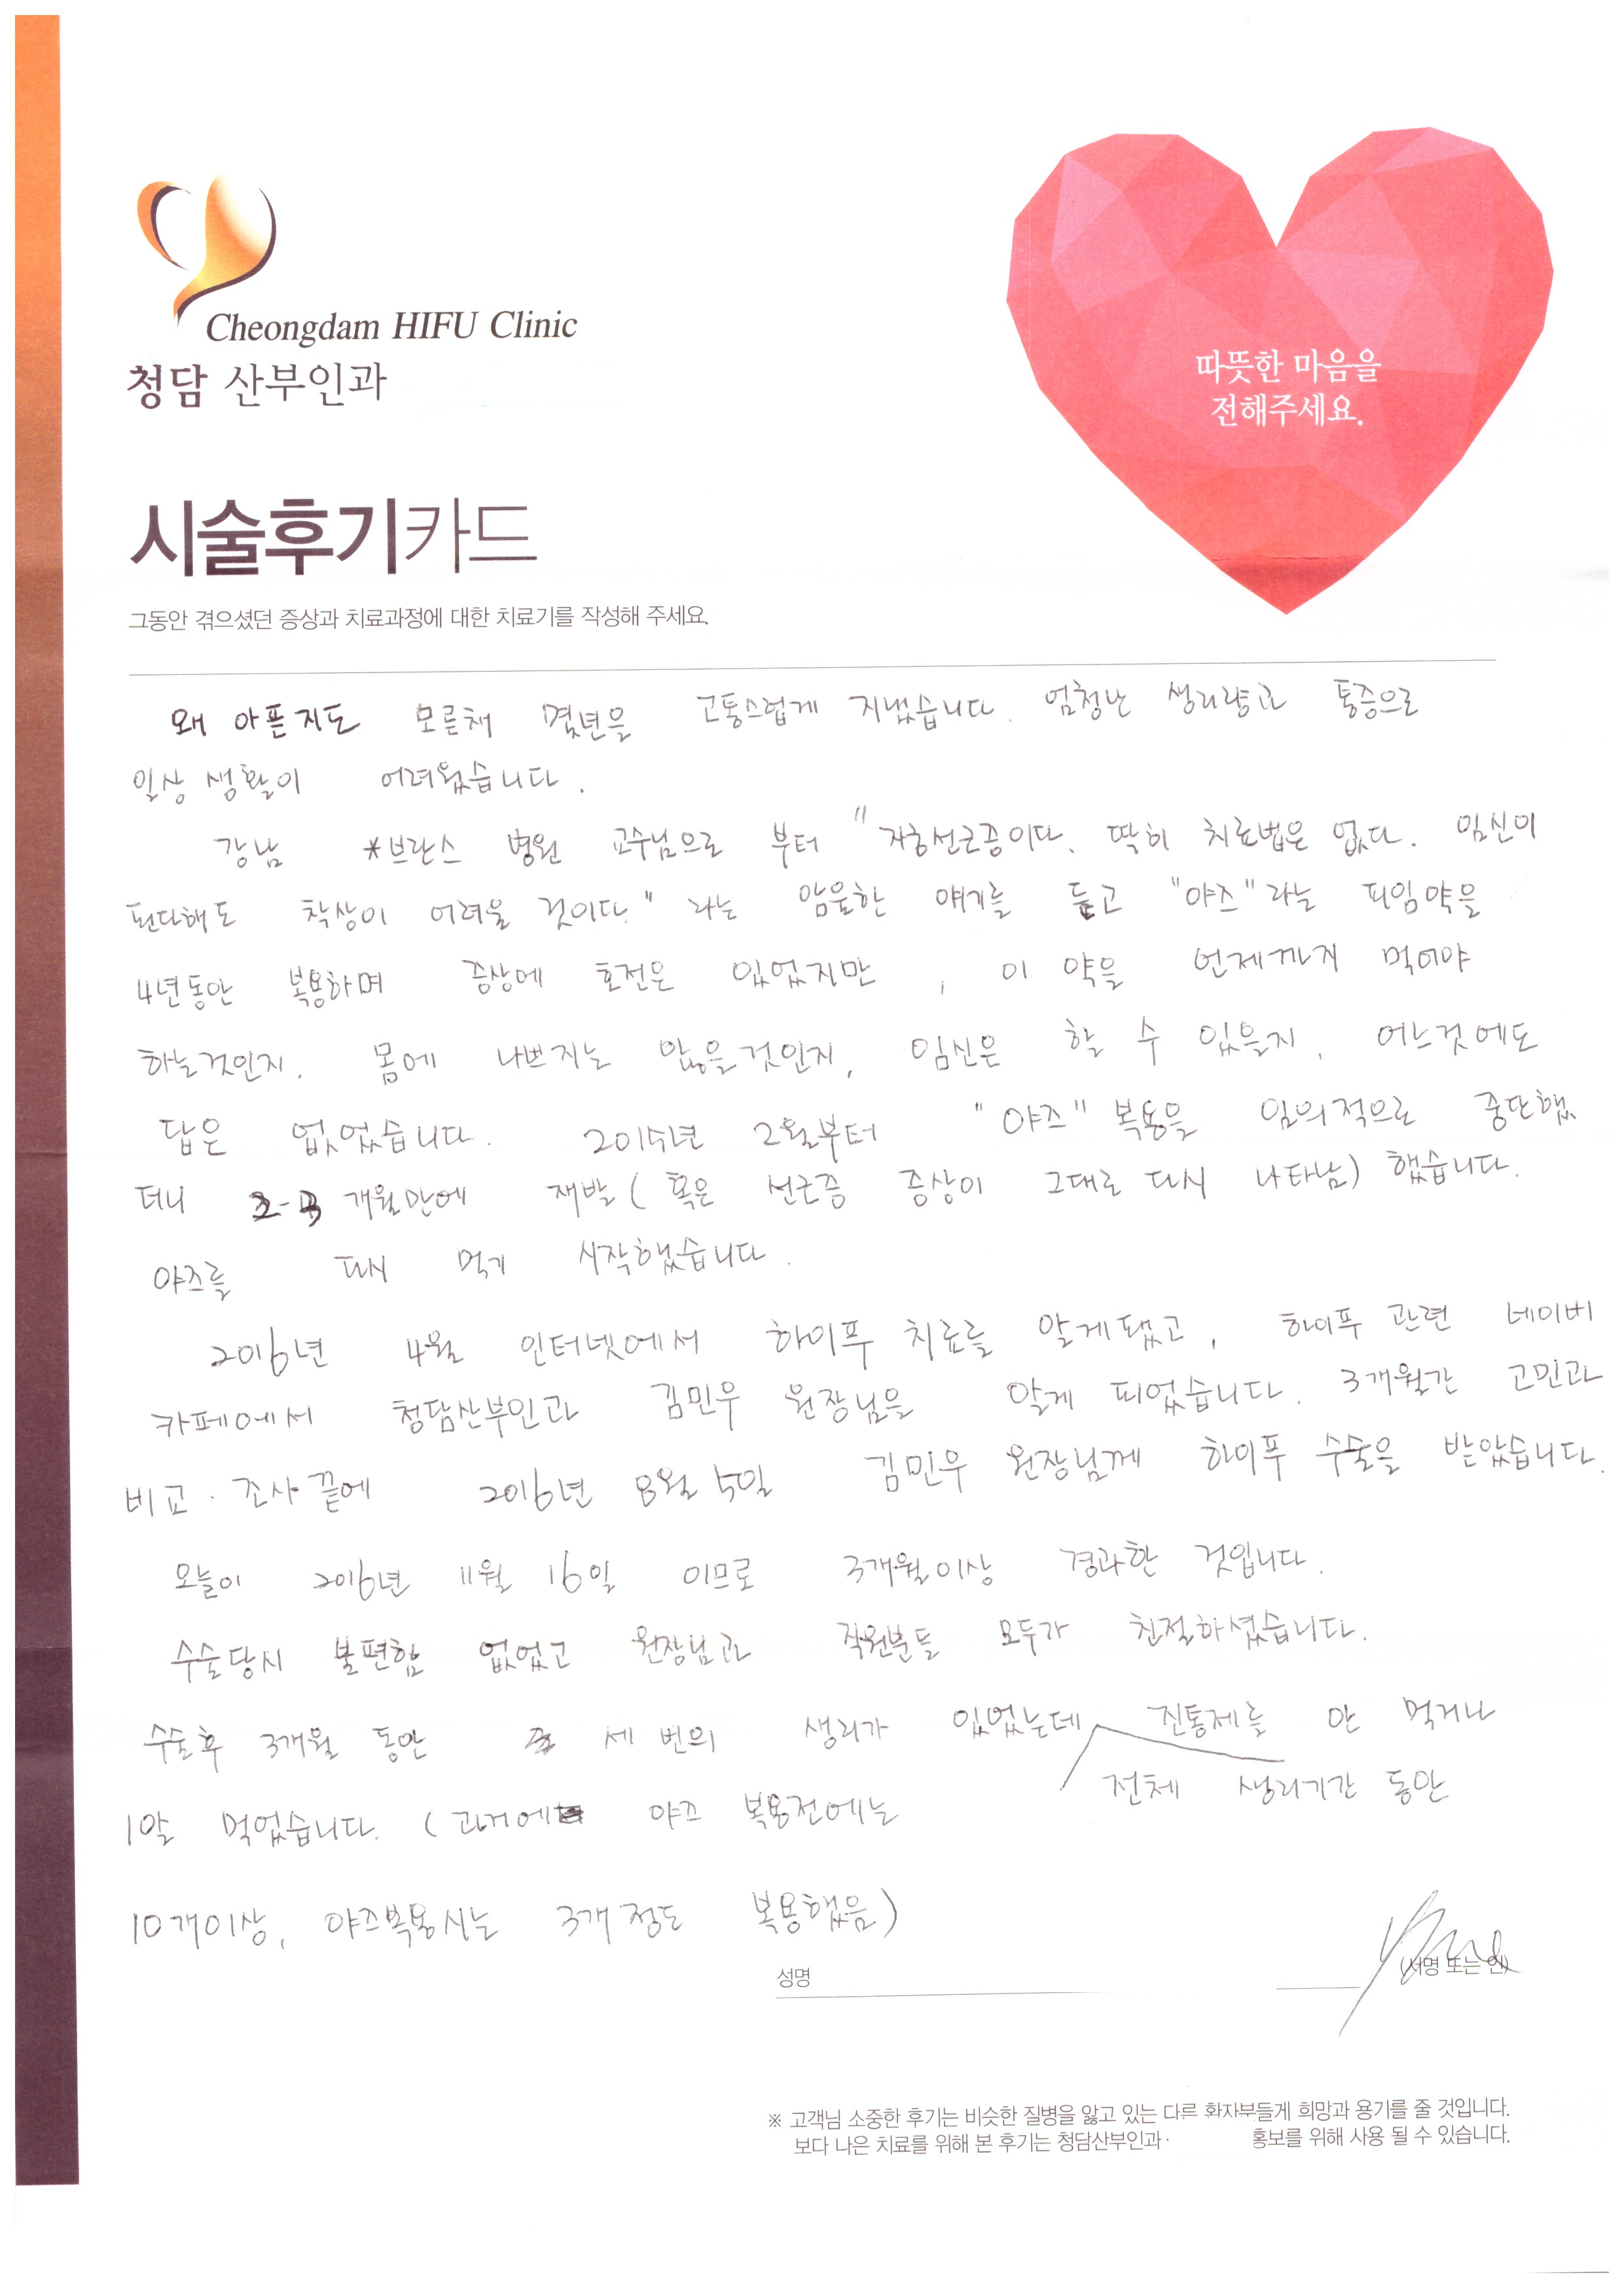 Cheongdam HIFU Clinic
청담 산부인과
따뜻한 마음을
전해주세요.
시술후기카드
그동안 겪으셨던 증상과 치료과정에 대한 치료기를 작성해 주세요.
왜 아픈지도 모른채 몇년을 고통스럽게 지냈습니다. 엄청난 생리량과 통증으로
일상 생활이 어려웠습니다.
강남 *브란스 병원 교수님으로 부터 "자궁선근증이다. 딱히 치료법은 없다. 임신이
된다해도 착상이 어려울 것이다." 라는 암울한 얘기를 듣고 "야즈"라는 피임약을
4년동안 복용하며 증상에 호전은 있었지만, 이 약을 언제까지 먹어야
하는것인지. 몸에 나쁘지는 않을것인지, 임신은 할 수 있을지, 어느것에도
답은 없었습니다. 2015년 2월부터 "야즈" 복용을 임의적으로 중단했
더니 2-3 개월만에 재발(혹은 선근증 증상이 그대로 다시 나타남) 했습니다.
야즈를 다시 먹기 시작했습니다.
2016년 4월 인터넷에서 하이푸 치료를 알게됐고, 하이푸 관련 네이버
카페에서 청담산부인과 김민우 원장님을 알게 되었습니다. 3개월간 고민과
비교·조사 끝에 2016년 8월 5일 김민우 원장님께 하이푸 수술을 받았습니다.
오늘이 2016년 11월 16일 이므로 3개월이상 경과한 것입니다.
수술당시 불편함 없었고 원장님과 직원분들 모두가 친절하셨습니다.
수술후 3개월 동안 세 번의 생리가 있었는데 진통제를 안 먹거나
전체 생리기간 동안
1알 먹었습니다. (과거에 야즈 복용전에는
10개이상, 야즈복용시는 3개 정도 복용했음)
성명
(서명 또는 인)
※ 고객님 소중한 후기는 비슷한 질병을 앓고 있는 다른 환자분들게 희망과 용기를 줄 것입니다.
보다 나은 치료를 위해 본 후기는 청담산부인과· 홍보를 위해 사용 될 수 있습니다.